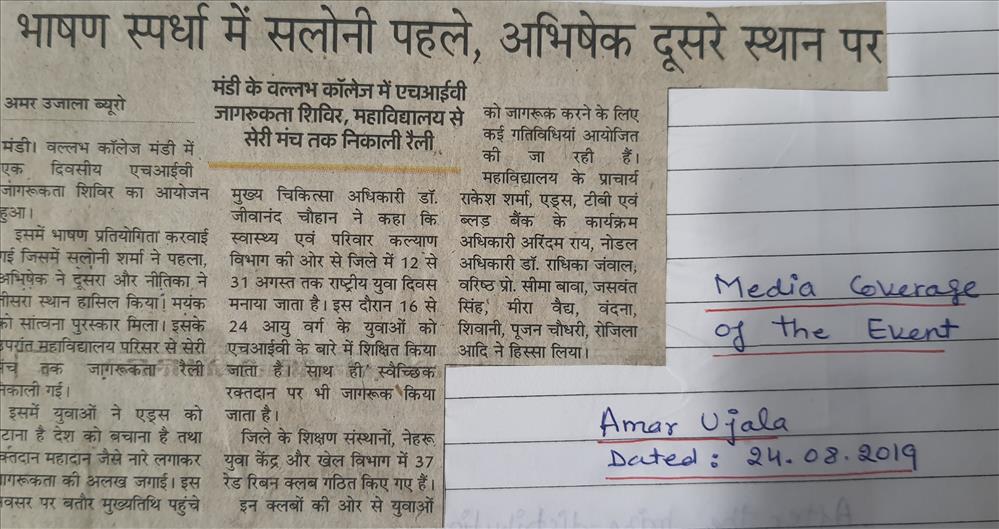 भाषण स्पर्धा में सलोनी पहले, अभिषेक दूसरे स्थान पर
मंडी के वल्लभ कॉलेज में एचआईवी
जागरुकता शिविर, महाविद्यालय से
सेरी मंच तक निकाली रैली
अमर उजाला ब्यूरो
मंडी। वल्लभ कॉलेज मंडी में
एक दिवसीय एचआईवी
जागरूकता शिविर का आयोजन
हुआ।
इसमें भाषण प्रतियोगिता करवाई
गई जिसमें सलोनी शर्मा ने पहला,
अभिषेक ने दूसरा और नीतिका ने
तीसरा स्थान हासिल किया। मयंक
को सांत्वना पुरस्कार मिला। इसके
उपरांत महाविद्यालय परिसर से सेरी
मंच तक जागरूकता रैली
निकाली गई।
इसमें युवाओं ने एड्स को
टाना है देश को बचाना है तथा
क्तदान महादान जैसे नारे लगाकर
ागरूकता की अलख जगाई। इस
वसर पर बतौर मुख्यतिथि पहुंचे
मुख्य चिकित्सा अधिकारी डॉ.
जीवानंद चौहान ने कहा कि
स्वास्थ्य एवं परिवार कल्याण
विभाग की ओर से जिले में 12 से
31 अगस्त तक राष्ट्रीय युवा दिवस
मनाया जाता है। इस दौरान 16 से
24 आयु वर्ग के युवाओं को
एचआईवी के बारे में शिक्षित किया
जाता है। साथ ही स्वैच्छिक
रक्तदान पर भी जागरूक किया
जाता है।
जिले के शिक्षण संस्थानों, नेहरू
युवा केंद्र और खेल विभाग में 37
रेड रिबन क्लब गठित किए गए हैं।
इन क्लबों की ओर से युवाओं
को जागरूक करने के लिए
कई गतिविधियां आयोजित
की जा रही हैं।
महाविद्यालय के प्राचार्य
राकेश शर्मा, एड्स, टीबी एवं
ब्लड बैंक के कार्यक्रम
अधिकारी अरिंदम राय, नोडल
अधिकारी डॉ. राधिका जंवाल,
वरिष्ठ प्रो. सीमा बावा, जसवंत
सिंह, मीरा वैद्य, वंदना,
शिवानी, पूजन चौधरी, रोजिला
आदि ने हिस्सा लिया।
Media Coverage
of the Event
Amar Ujala
Dated: 24.08.2019